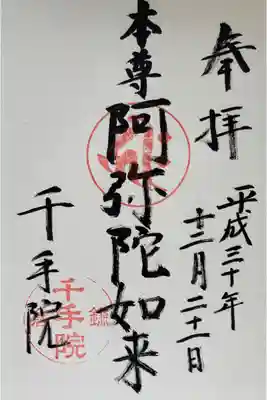 奉拝
平成三十年
十二月二十一日
本尊阿弥陀如来
千手院
千手院